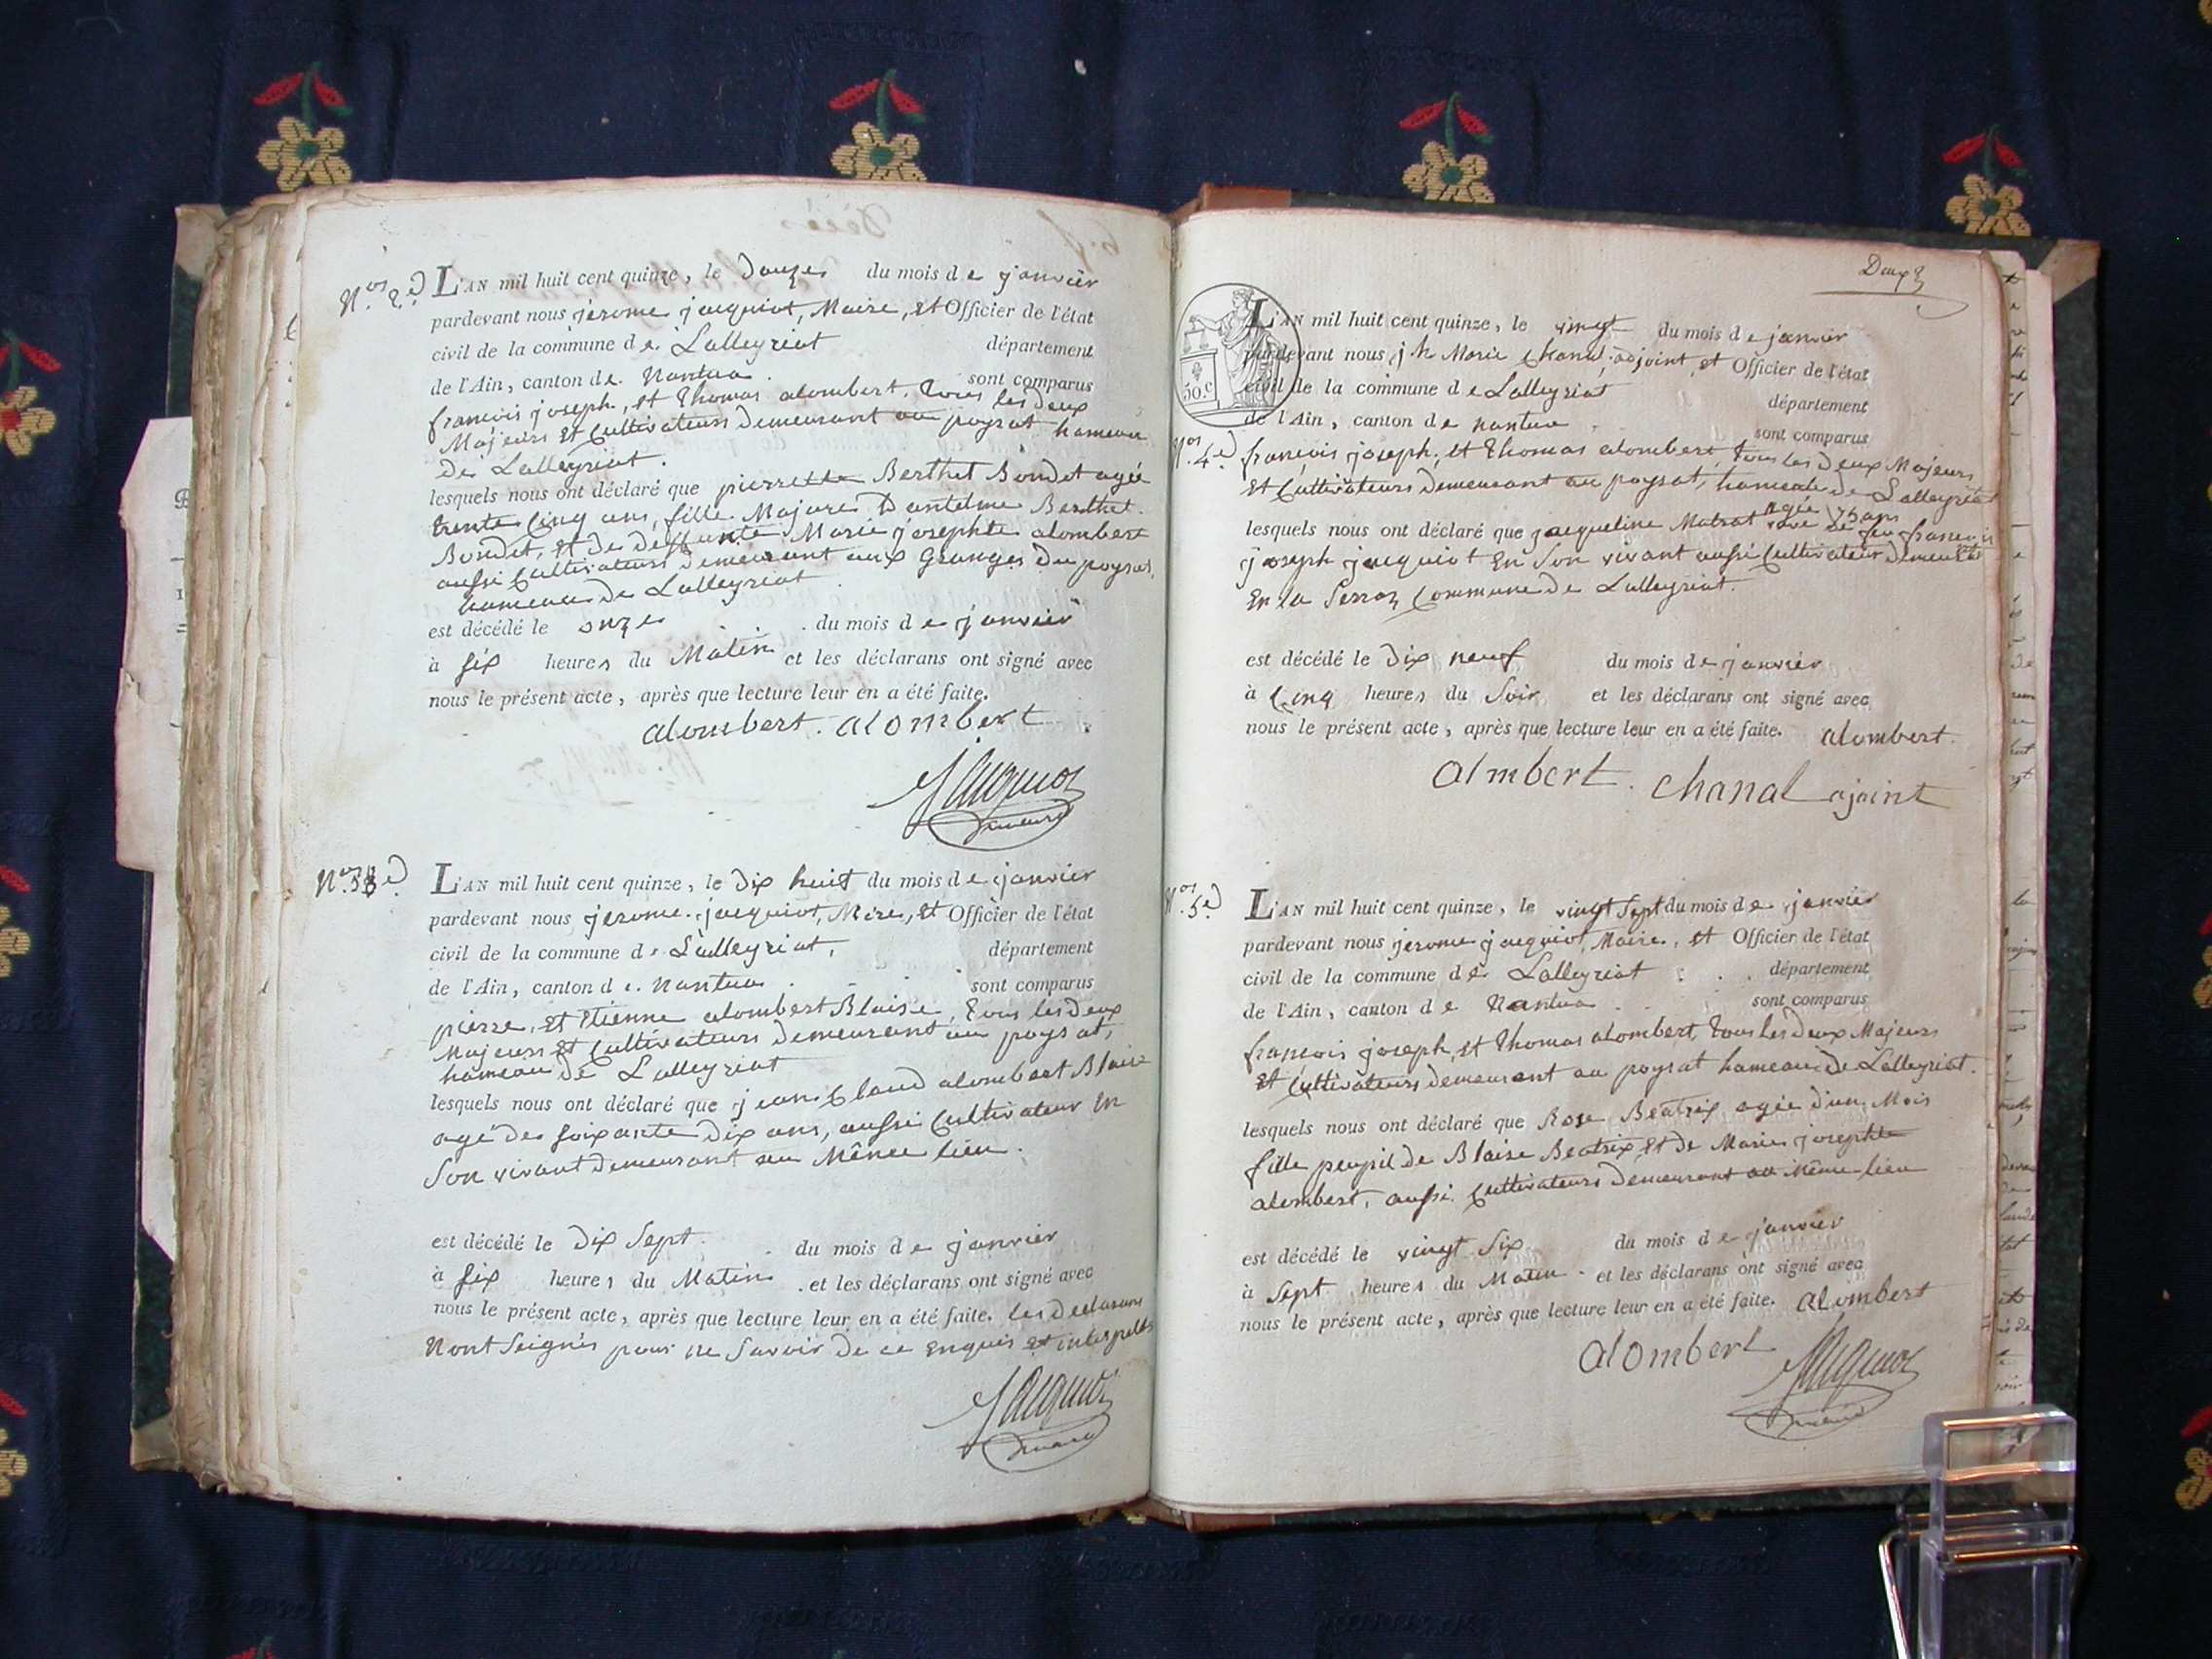 Nos. 2.d
L'AN mil huit cent quinze, le douze du mois de janvier
pardevant nous jerome jacquiot, Maire, et Officier de l'état
civil de la commune de Lalleyriat département
de l'Ain, canton de Nantua sont comparus
francois joseph, et Thomas alombert, tous les deux
Majeurs et Cultivateurs demeurant au poysat hameau
de Lalleyriat.
lesquels nous ont déclaré que pierrette Berthet Bondet agée
trente Cinq ans, fille Majure Dantelme Berthet
Bondet, et de deffunte Marie josephte alombert
aussi Cultivateurs demeurant aux Granges du poysat,
hameau de Lalleyriat.
est décédé le onze du mois de janvier
à six heures du Matin et les déclarans ont signé avec
nous le présent acte, après que lecture leur en a été faite.
alombert. alombert
Jacquiot
maire
Nos. 3 d
L'AN mil huit cent quinze, le dix huit du mois de janvier
pardevant nous jerome jacquiot, Mère, et Officier de l'état
civil de la commune de Lalleyriat, département
de l'Ain, canton de Nantua sont comparus
pierre, et Etienne alombert Blaise, tous les deux
Majeurs et Cultivateurs demeurant au poysat,
hameau de Lalleyriat
lesquels nous ont déclaré que jean Claud alombert Blaise
agé de soixante dix ans, aussi Cultivateur En
Son vivant demeurant au Même lieu.
est décédé le dix Sept du mois de janvier
à six heures du Matin et les déclarans ont signé avec
nous le présent acte, après que lecture leur en a été faite. les declarans
Nont Seignés pour ne Savoir de ce Enquis et interpellés
Jacquiot
maire
Deux
50.c
L'AN mil huit cent quinze, le vingt du mois de janvier
pardevant nous jh Marie Chanal, adjoint, et Officier de l'état
civil de la commune de Lalleyriat
département
de l'Ain, canton de nantua
sont comparus
Nos. 4.d francois joseph, et Thomas alombert tous les deux Majeurs
et Cultivateurs demeurant au poysat, hameau de Lalleyriat
agée 75 ans
lesquels nous ont déclaré que jacqueline Matrat veve de feu francois
joseph jacquiot En Son vivant aussi Cultivateur demeurant
En la Serraz Commune de Lalleyriat.
est décédé le dix neuf du mois de janvier
à Cinq heures du Soir et les déclarans ont signé avec
nous le présent acte, après que lecture leur en a été faite. alombert.
almbert. chanal ajoint
Nos. 5.d
L'AN mil huit cent quinze, le vingt Sept du mois de janvier
pardevant nous jerome jacquiot, Maire, et Officier de l'état
civil de la commune de Lalleyriat département
de l'Ain, canton de Nantua sont comparus
francois joseph, et Thomas alombert, tous les deux Majeurs
et Cultivateurs demeurant au poysat hameau de Lalleyriat.
lesquels nous ont déclaré que Rose Beatrix agée d'un Mois
fille peupil de Blaise Beatrix, et de Marie josephte
alombert, aussi Cultivateurs demeurant au Même lieu
est décédé le vingt six du mois de janvier
à sept heures du Matin et les déclarans ont signé avec
nous le présent acte, après que lecture leur en a été faite. alombert
alombert Jacquiot
maire